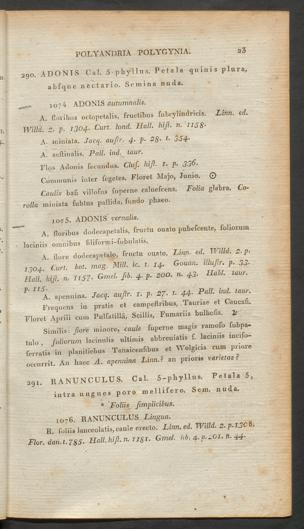 POLYANDRIA POLYGYNIA. 23
290. ADONIS Cal. 5-phyllus. Petala quinis plura,
absque nectario. Semina nuda.
1074 ADONIS autumnalis.
A. floribus octopetalis, fructibus subcylindricis. Linn. ed.
Willd. 2. p. 1304. Curt. lond. Hall. hist. n. 1158.
A. miniata. Jacq. austr. 4. p. 28. t. 354.
A. aestivalis. Pall. ind. taur.
Flos Adonis secundus. Clus. hist. 1. p. 336.
Communis inter segetes. Floret Majo, Junio. ☉
Caulis basi villosus superne calvescens. Folia glabra. Co-
rolla miniata subtus pallida, fundo phaeo.
1075. ADONIS vernalis.
A. floribus dodecapetalis, fructu ovato pubescente, foliorum
laciniis omnibus filiformi-subulatis.
A. flore dodecapetalo, fructu ovato. Linn. ed. Willd. 2. p.
1304. Curt. bot. mag. Mill. ic. t. 14. Gouan. illustr. p. 33.
Hall. hist. n. 1157. Gmel. sib. 4. p. 200. n. 43. Habl. taur.
p. 115.
A. apennina. Jacq. austr. 1. p. 27. t. 44. Pall. ind. taur.
Frequens in pratis et campestribus, Tauriae et Caucasi.
Floret Aprili cum Pulsatillâ, Scillis, Fumariis bulbosis.
Similis: flore minore, caule superne magis ramoso subpa-
tulo, foliorum laciniis ultimis abbreviatis s. laciniis inciso-
serratis in planitiebus Tanaicensibus et Wolgicis cum priore
occurrit. An haec A. apennina Linn.? an prioris varietas?
291. RANUNCULUS. Cal. 5-phyllus. Petala 5,
intra ungues poro mellifero. Sem. nuda.
* Foliis simplicibus.
1076. RANUNCULUS Lingua.
R. foliis lanceolatis, caule erecto. Linn. ed. Willd. 2. p. 1306.
Flor. dan. t. 785. Hall. hist. n. 1181. Gmel. sib. 4. p. 201. n. 44.